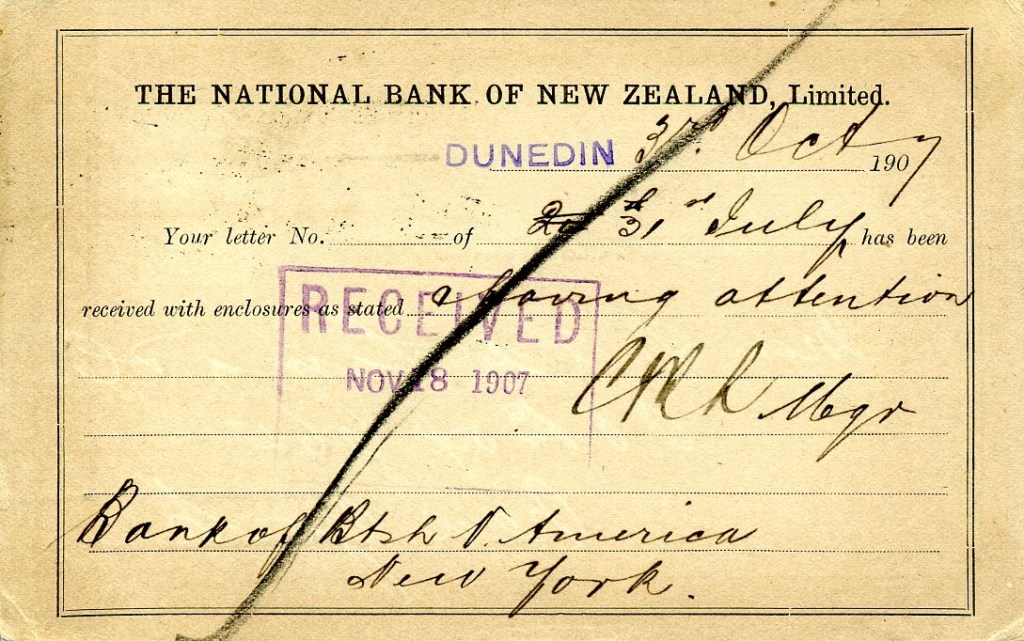 THE NATIONAL BANK OF NEW ZEALAND, Limited.
DUNEDIN 3rd. Oct 1907
Your letter No. of 31st July has been
received with enclosures as stated & having attention
RECEIVED
NOV 18 1907
Mgr
Bank of Btsh N. America
New York.